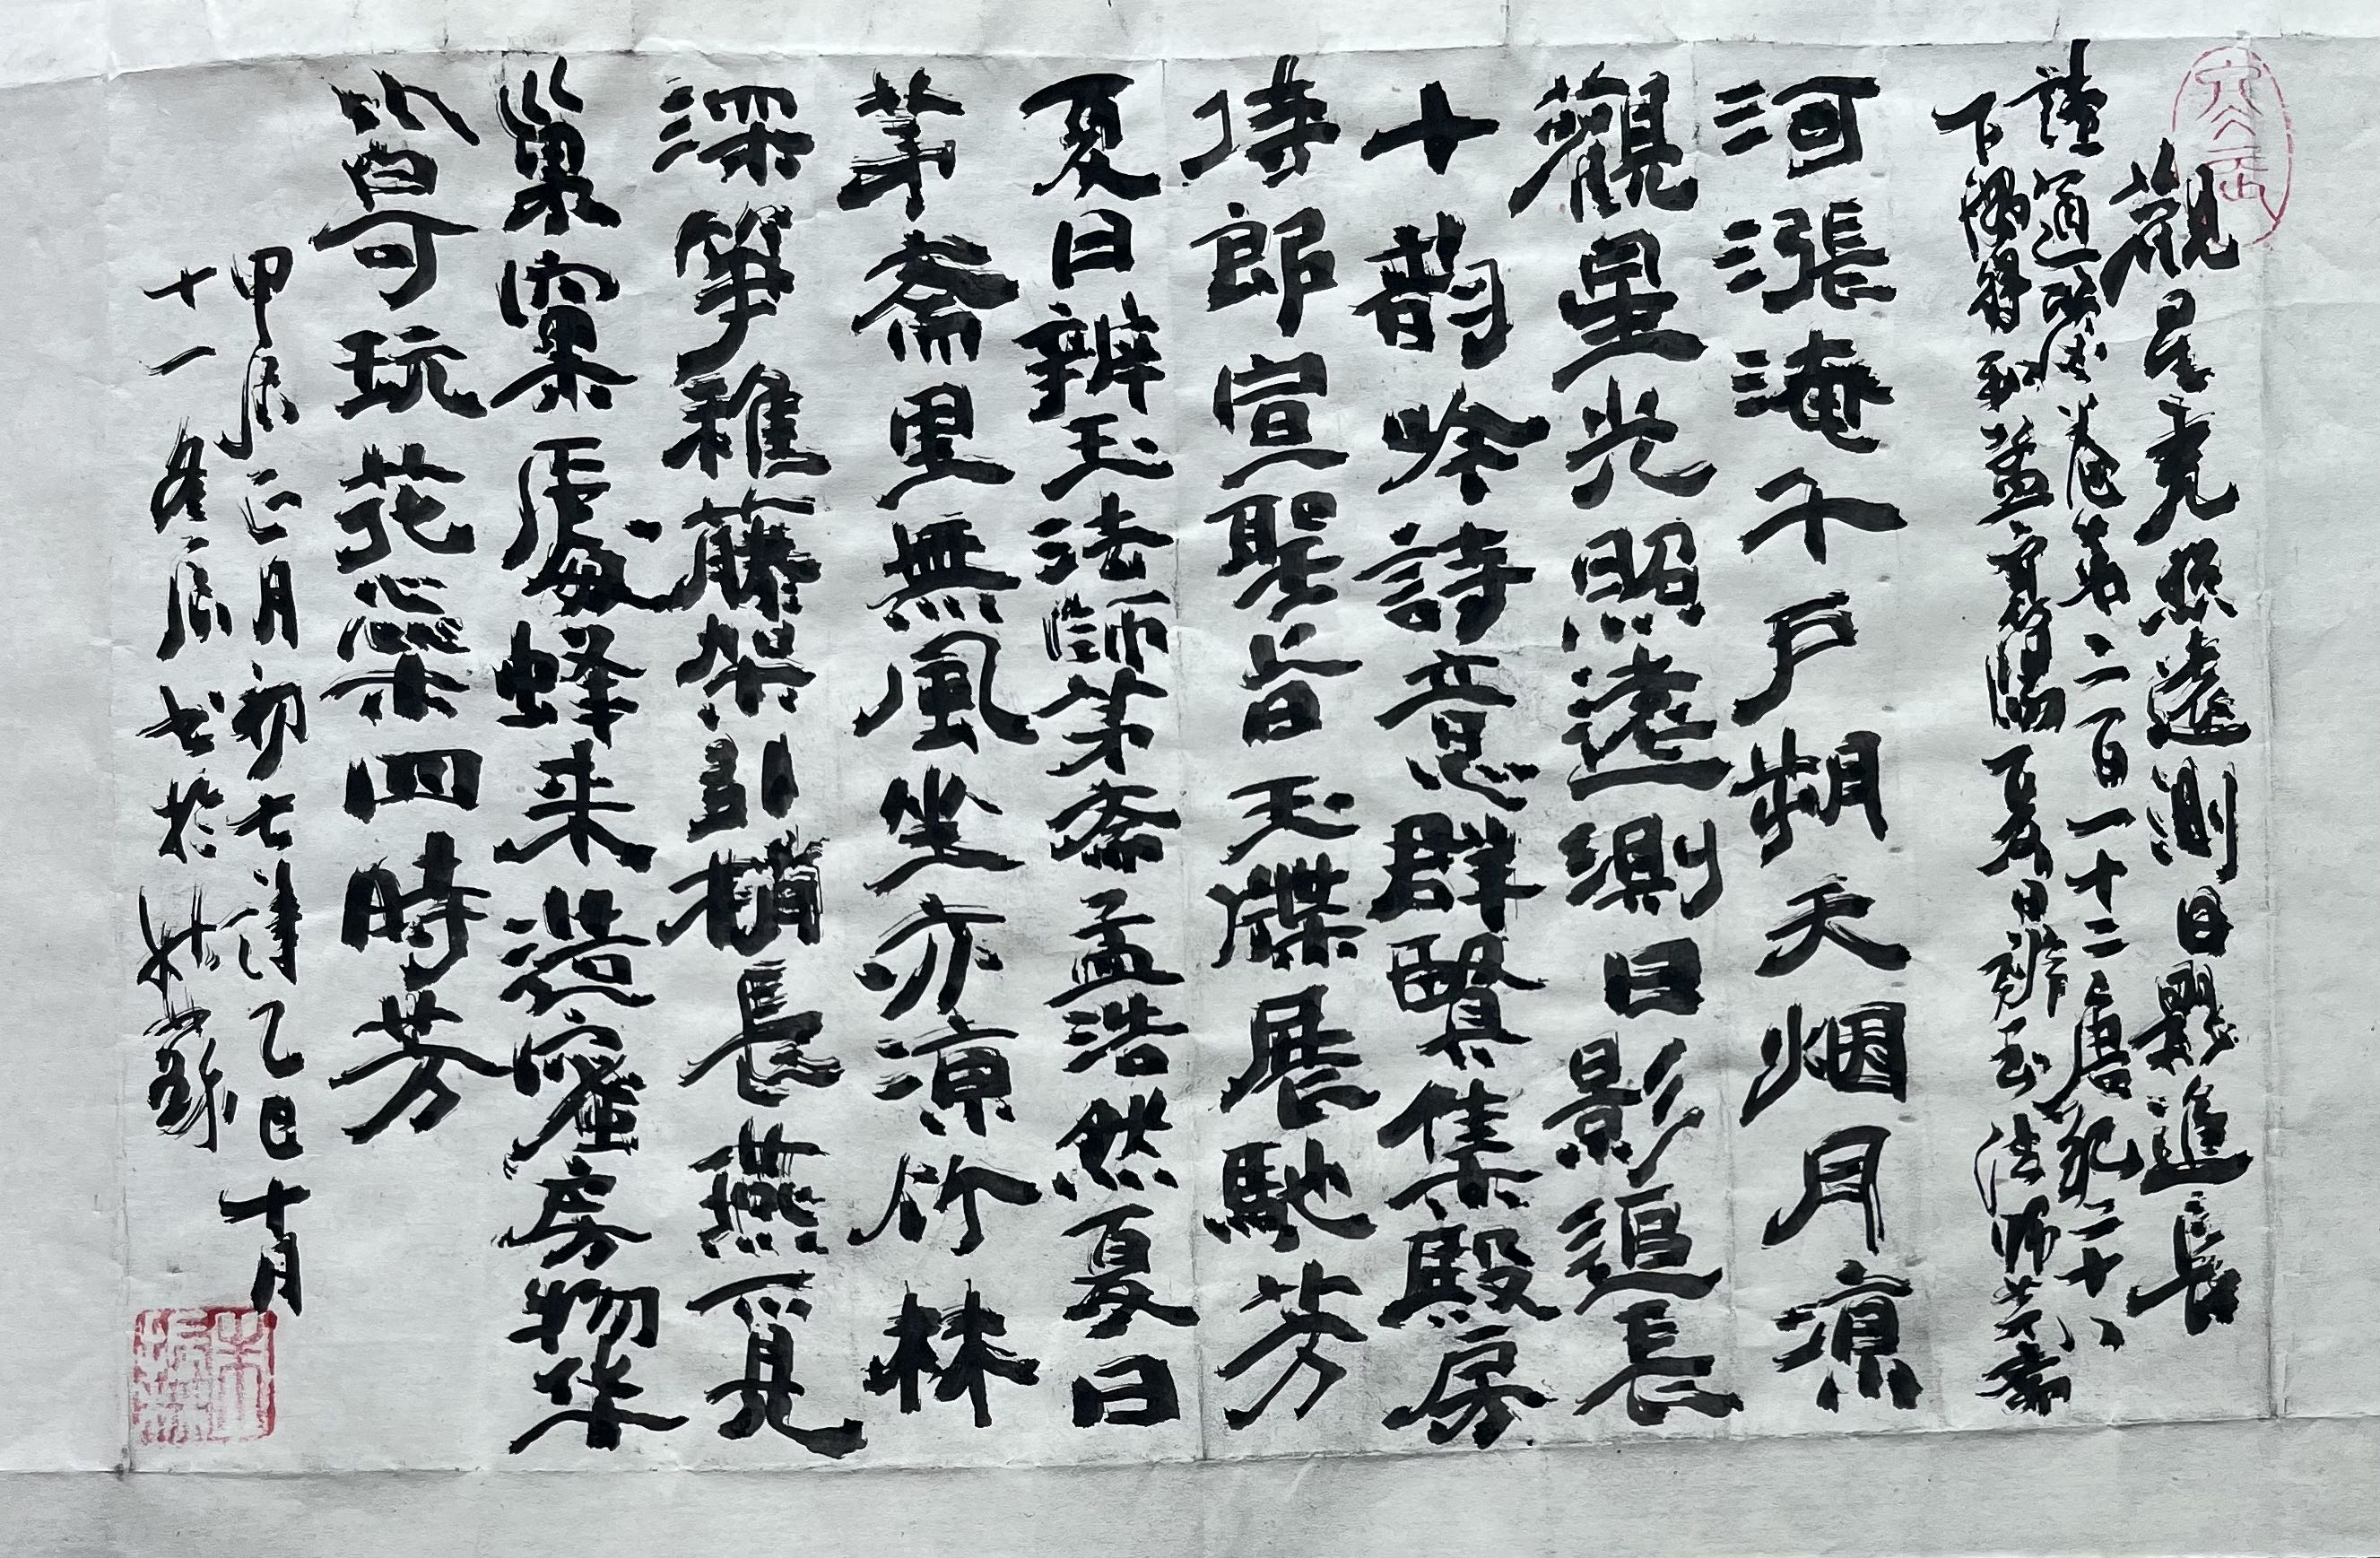 觀星亮照遠測日影追長
讀通鑑卷第二百一十二唐紀二十八
下偶得和孟襄陽夏日辨玉法师茅齋
河漲淹千戶朔天烟月凉
觀星光照遠測日影追長
十韵吟詩意群賢集殿房
侍郎宣聖旨玉牒展馳芳
夏日辨玉法師茅齋孟浩然夏日
茅齋里無風坐亦凉竹林
深筍稚藤架引梢長燕覓
巢窠處蜂来造蜜房物华
皆可玩花蕊四時芳
甲辰正月初七詩乙巳十月
十一冬辰书於姑蘇